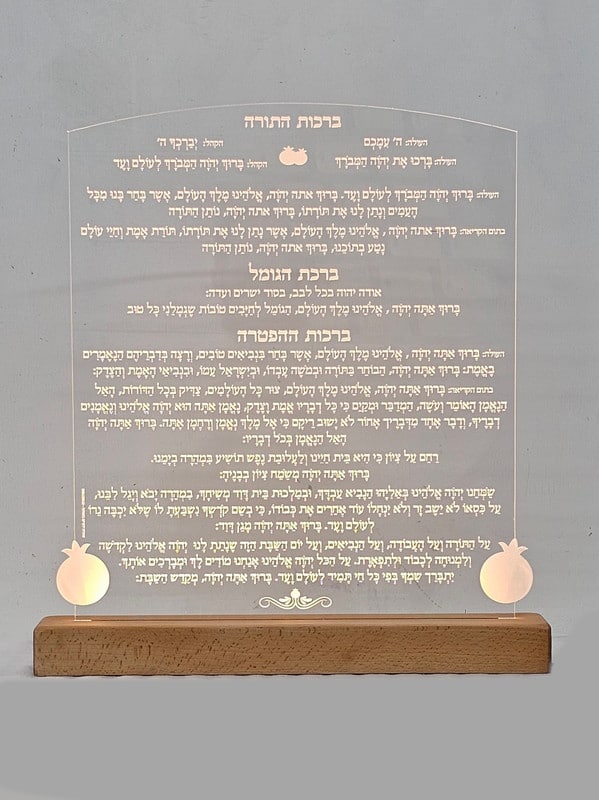 ברכות התורה
העולה: ה' עִמָּכֶם הקהל: יְבָרֶכְךָ ה'
העולה: בָּרְכוּ אֶת יְהֹוָה הַמְבֹרָךְ הקהל: בָּרוּךְ יְהֹוָה הַמְבֹרָךְ לְעוֹלָם וָעֶד
העולה: בָּרוּךְ יְהֹוָה הַמְבֹרָךְ לְעוֹלָם וָעֶד. בָּרוּךְ אתה יְהֹוָה, אֱלֹהֵינוּ מֶלֶךְ הָעוֹלָם, אֲשֶׁר בָּחַר בָּנוּ מִכָּל
הָעַמִּים וְנָתַן לָנוּ אֶת תּוֹרָתוֹ, בָּרוּךְ אתה יְהֹוָה, נוֹתֵן הַתּוֹרָה
בתום הקריאה: בָּרוּךְ אתה יְהֹוָה , אֱלֹהֵינוּ מֶלֶךְ הָעוֹלָם, אֲשֶׁר נָתַן לָנוּ אֶת תּוֹרָתוֹ, תּוֹרַת אֱמֶת וְחַיֵּי עוֹלָם
נָטַע בְּתוֹכֵנוּ, בָּרוּךְ אתה יְהֹוָה, נוֹתֵן הַתּוֹרָה
ברכת הגומל
אודה יהוה בכל לבב, בסוד ישרים ועדה:
בָּרוּךְ אַתָּה יְהֹוָה , אֱלֹהֵינוּ מֶלֶךְ הָעוֹלָם, הַגּוֹמֵל לְחַיָּבִים טוֹבוֹת שֶׁגְּמָלַנִי כָּל טוּב
ברכות ההפטרה
העולה: בָּרוּךְ אַתָּה יְהֹוָה , אֱלֹהֵינוּ מֶלֶךְ הָעוֹלָם, אֲשֶׁר בָּחַר בִּנְבִיאִים טוֹבִים, וְרָצָה בְדִבְרֵיהֶם הַנֶּאֱמָרִים
בֶּאֱמֶת: בָּרוּךְ אַתָּה יְהֹוָה, הַבּוֹחֵר בַּתּוֹרָה וּבְמֹשֶׁה עַבְדּוֹ, וּבְיִשְׂרָאֵל עַמּוֹ, וּבִנְבִיאֵי הָאֱמֶת וְהַצֶּדֶק:
בתום הקריאה: בָּרוּךְ אַתָּה יְהֹוָה, אֱלֹהֵינוּ מֶלֶךְ הָעוֹלָם, צוּר כָּל הָעוֹלָמִים, צַדִּיק בְּכָל הַדּוֹרוֹת, הָאֵל
הַנֶּאֱמָן הָאוֹמֵר וְעֹשֶׂה, הַמְדַבֵּר וּמְקַיֵּם כִּי כָל דְּבָרָיו אֱמֶת וָצֶדֶק, נֶאֱמָן אַתָּה הוּא יְהֹוָה אֱלֹהֵינוּ וְנֶאֱמָנִים
דְּבָרֶיךָ, וְדָבָר אֶחָד מִדְּבָרֶיךָ אָחוֹר לֹא יָשׁוּב רֵיקָם כִּי אֵל מֶלֶךְ נֶאֱמָן וְרַחֲמָן אָתָּה. בָּרוּךְ אַתָּה יְהֹוָה
הָאֵל הַנֶּאֱמָן בְּכָל דְּבָרָיו:
רַחֵם עַל צִיּוֹן כִּי הִיא בֵּית חַיֵּינוּ וְלַעֲלוּבַת נֶפֶשׁ תּוֹשִׁיעַ בִּמְהֵרָה בְיָמֵנוּ.
בָּרוּךְ אַתָּה יְהֹוָה מְשַׂמֵּחַ צִיּוֹן בְּבָנֶיהָ:
שַׂמְּחֵנוּ יְהֹוָה אֱלֹהֵינוּ בְּאֵלִיָּהוּ הַנָּבִיא עַבְדֶּךָ, וּבְמַלְכוּת בֵּית דָּוִד מְשִׁיחֶךָ, בִּמְהֵרָה יָבֹא וְיָגֵל לִבֵּנוּ,
עַל כִּסְאוֹ לֹא יֵשֵׁב זָר וְלֹא יִנְחֲלוּ עוֹד אֲחֵרִים אֶת כְּבוֹדוֹ, כִּי בְשֵׁם קָדְשְׁךָ נִשְׁבַּעְתָּ לּוֹ שֶׁלֹּא יִכְבֶּה נֵרוֹ
לְעוֹלָם וָעֶד. בָּרוּךְ אַתָּה יְהֹוָה מָגֵן דָּוִד:
עַל הַתּוֹרָה וְעַל הָעֲבוֹדָה, וְעַל הַנְּבִיאִים, וְעַל יוֹם הַשַּׁבָּת הַזֶּה שֶׁנָּתַתָּ לָנוּ יְהֹוָה אֱלֹהֵינוּ לִקְדֻשָּׁה
וְלִמְנוּחָה לְכָבוֹד וּלְתִפְאָרֶת. עַל הַכֹּל יְהֹוָה אֱלֹהֵינוּ אֲנַחְנוּ מוֹדִים לָךְ וּמְבָרְכִים אוֹתָךְ.
יִתְבָּרַךְ שִׁמְךָ בְּפִי כָּל חַי תָּמִיד לְעוֹלָם וָעֶד. בָּרוּךְ אַתָּה יְהֹוָה, מְקַדֵּשׁ הַשַּׁבָּת: